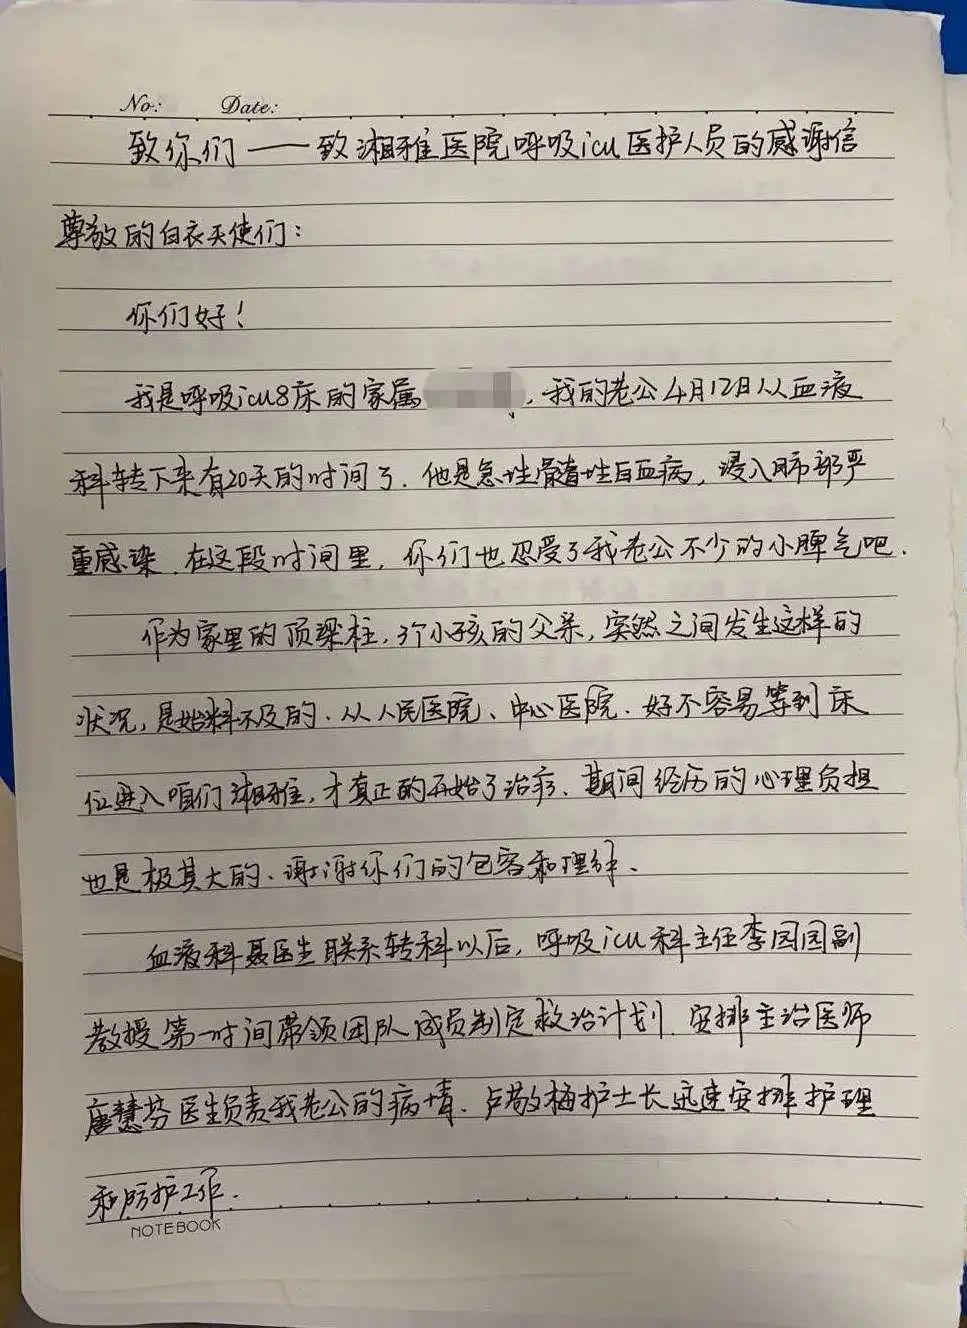 No:    Date:
致你们——致湘雅医院呼吸icu医护人员的感谢信
尊敬的白衣天使们：
你们好！
我是呼吸icu8床的家属，我的老公4月12日从血液
科转下来有20天的时间了．他是急性髓性白血病，浸入肺部严
重感染．在这段时间里，你们也忍受了我老公不少的小脾气吧．
作为家里的顶梁柱，3个小孩的父亲，突然之间发生这样的
状况，是始料不及的．从人民医院、中心医院．好不容易等到床
位进入咱们湘雅，才真正的开始了治疗．期间经历的心理负担
也是极其大的、谢谢你们的包容和理解、
血液科聂医生联系转科以后，呼吸icu科主任李园园副
教授第一时间带领团队成员制定救治计划．安排主治医师
唐慧芬医生负责我老公的病情．卢敬梅护士长迅速安排护理
和防护工作．
NOTEBOOK